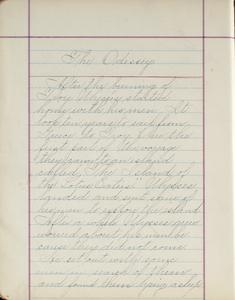 The Odessey
After the burning of
Troy Ulysses started
home with his men. It
took ten years to sail from
Greece to Troy. On the
first part of the voyage
they came to an island
called, "The Island of
the Lotus Eaters" Ulysses
landed and sent some of
his men to explore the island
After a while Ulysses grew
worried about his men be-
cause they did not come.
He set out with some
men in search of them
and found them lying asleep